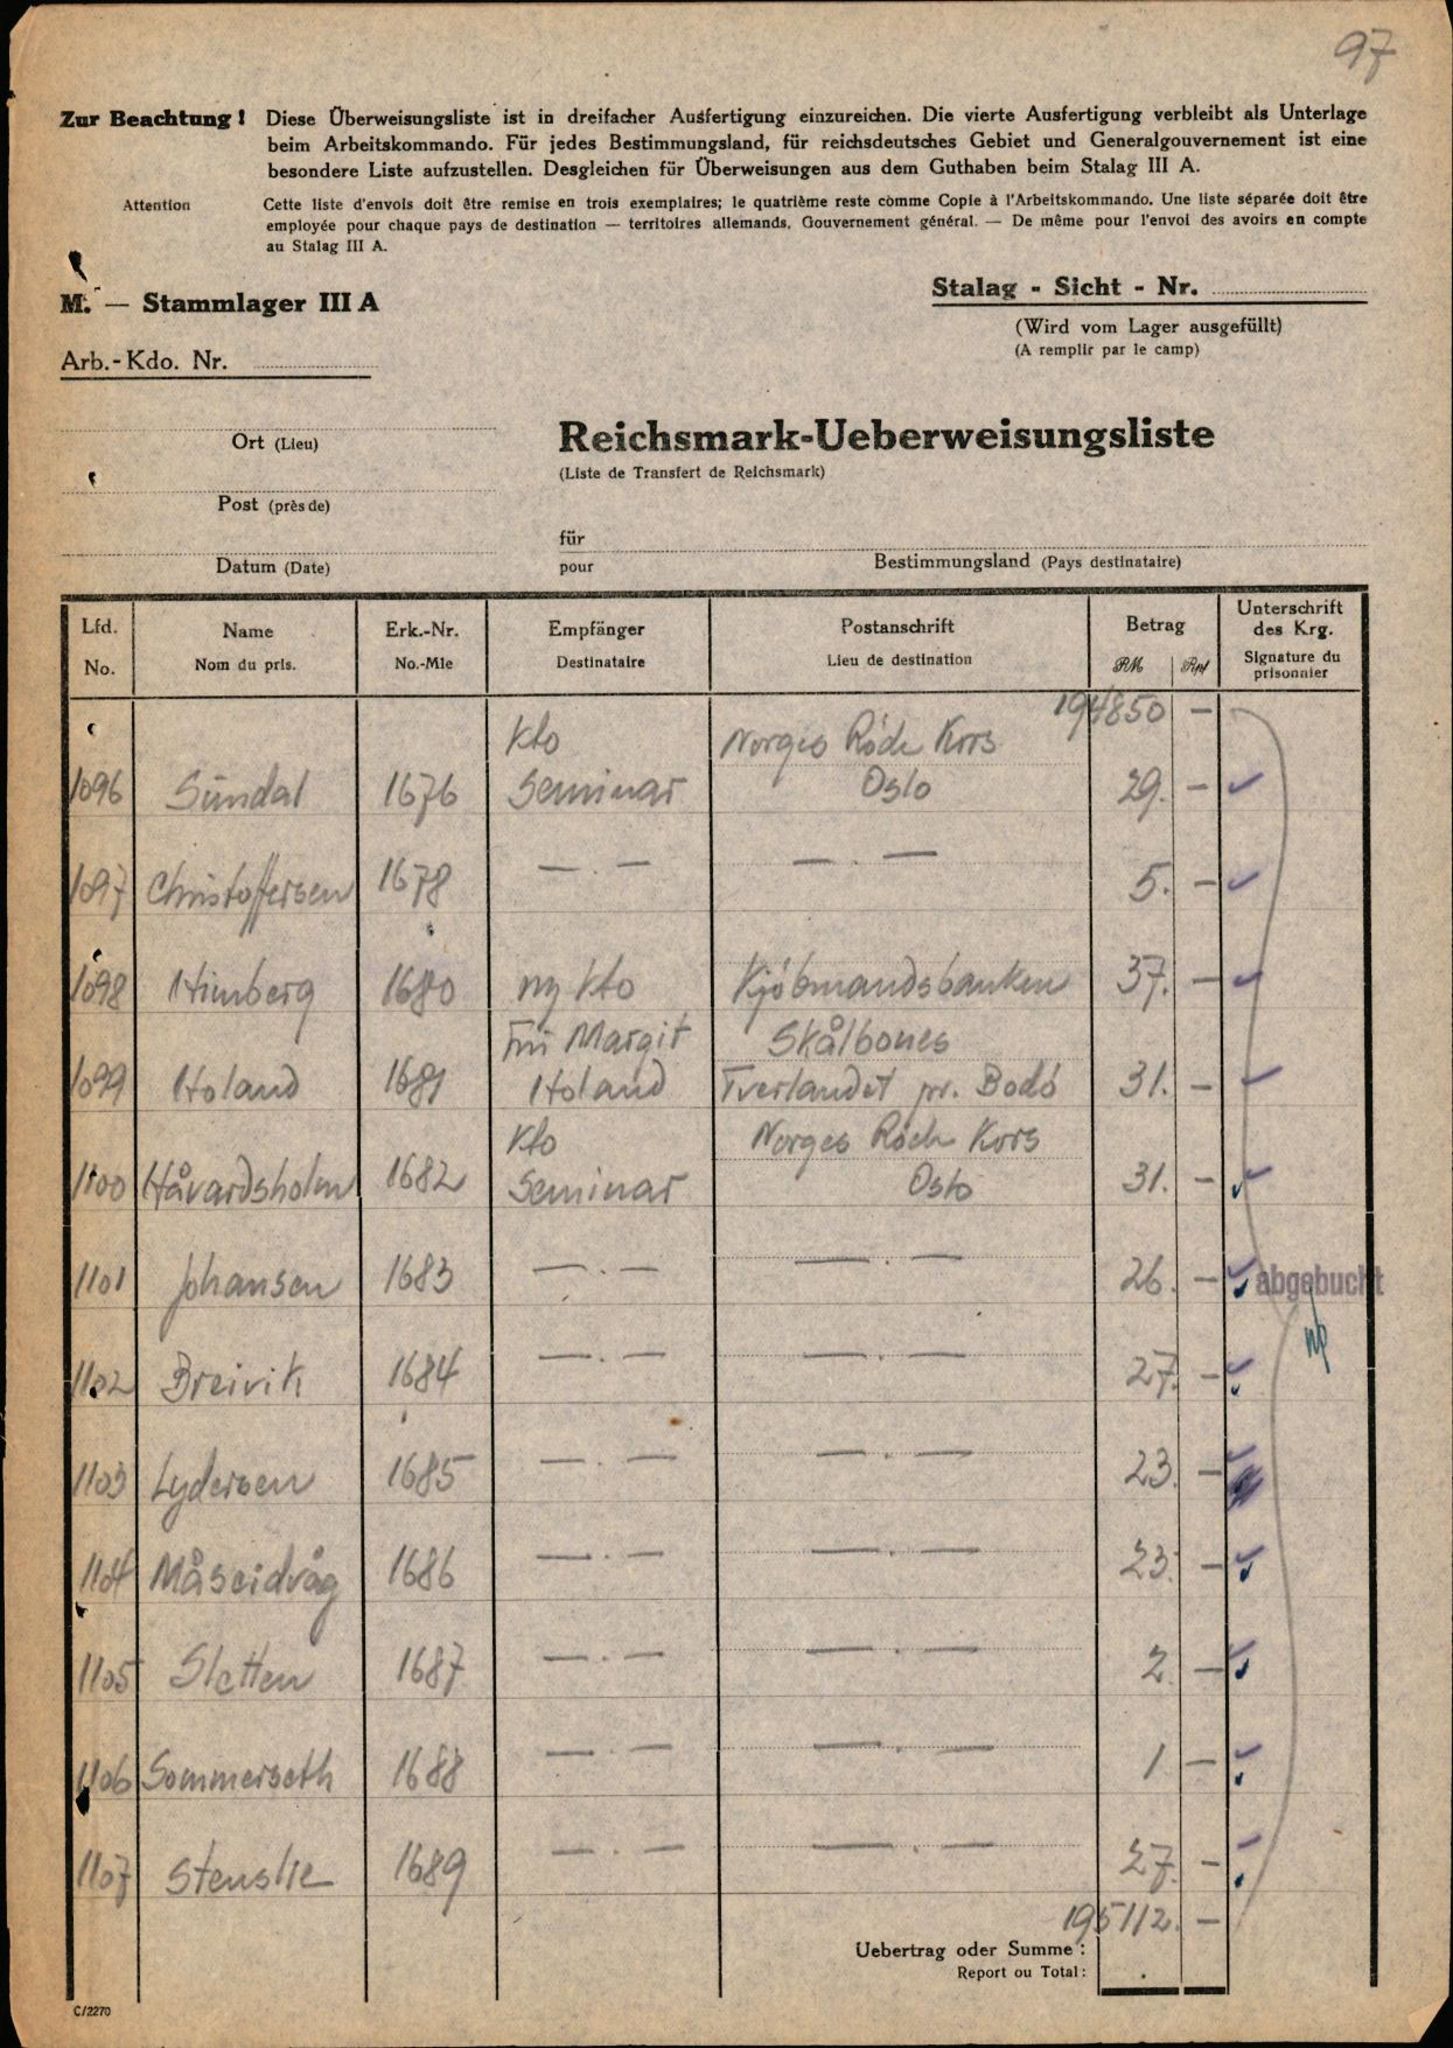 97
Zur Beachtung! Diese Überweisungsliste ist in dreifacher Ausfertigung einzureichen. Die vierte Ausfertigung verbleibt als Unterlage
beim Arbeitskommando. Für jedes Bestimmungsland, für reichsdeutsches Gebiet und Generalgouvernement ist eine
besondere Liste aufzustellen. Desgleichen für Überweisungen aus dem Guthaben beim Stalag III A.
Attention Cette liste d'envois doit être remise en trois exemplaires; le quatrième reste comme Copie à l'Arbeitskommando. Une liste séparée doit être
employée pour chaque pays de destination — territoires allemands, Gouvernement général. — De même pour l'envoi des avoirs en compte
au Stalag III A.
M. — Stammlager III A
Stalag - Sicht - Nr.
(Wird vom Lager ausgefüllt)
(A remplir par le camp)
Arb.-Kdo. Nr.
Ort (Lieu)
Reichsmark-Ueberweisungsliste
(Liste de Transfert de Reichsmark)
Post (près de)
für
pour
Bestimmungsland (Pays destinataire)
Datum (Date)
Lfd. No. Name Nom du pris. Erk.-Nr. No.-Mle Empfänger Destinataire Postanschrift Lieu de destination Betrag RM Rpf Unterschrift des Krg. Signature du prisonnier
194850 —
Kto Norges Röde Kors
1096 Sündal 1676 Seminar Oslo 29. —
1097 Christoffersen 1678 —.— —.— 5. —
1098 Himberg 1680 ny Kto Kjöbmandsbanken 37. —
Margit Skålbones
1099 Holand 1681 Holand Tverlandet pr. Bodö 31. —
Kto Norges Röde Kors
1100 Håvardsholm 1682 Seminar Oslo 31. —
1101 Johansen 1683 —.— —.— 26. — abgebucht
1102 Breivik 1684 —.— —.— 27. —
1103 Lydersen 1685 —.— —.— 23. —
1104 Måseidvåg 1686 —.— —.— 23. —
1105 Sletten 1687 —.— —.— 2 —
1106 Sommerseth 1688 —.— —.— 1 —
1107 Stenslie 1689 —.— —.— 27. —
195112. —
Uebertrag oder Summe :
Report ou Total :
C/2270